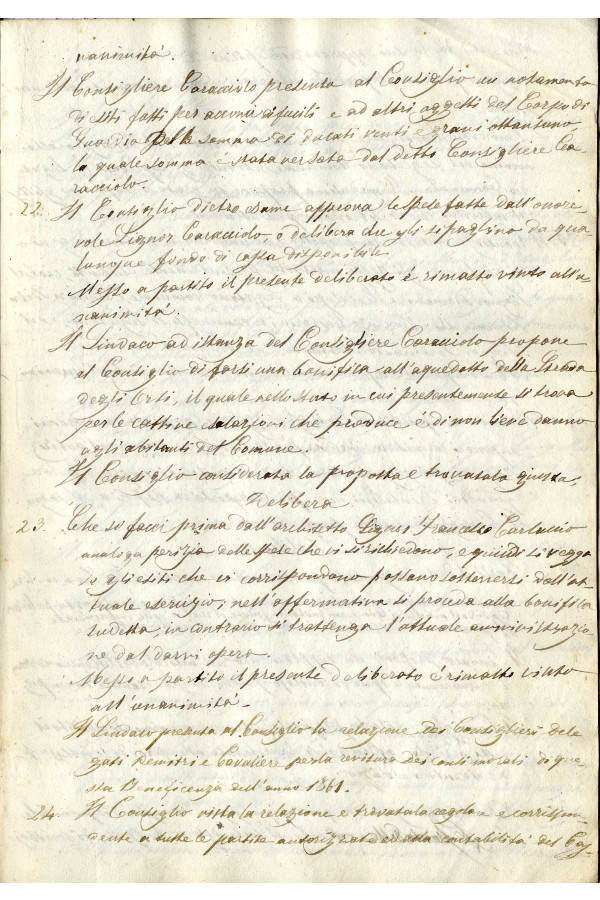 nanimità.
Il Consigliere Caracciolo presenta al Consiglio un notamento
di esiti fatti per acconii di fucili e ad altri oggetti del Corpo di
Guardia della somma di ducati venti e grani ottantuno
la quale somma è stata versata dal detto Consigliere Ca
racciolo.
22. Il Consiglio dietro esame approva le spese fatte dall'onore
vole Signor Caracciolo, e delibera che gli si paghino da qua
lunque fondo di cassa disponibile
Messo a partito il presente deliberato è rimasto vinto all'u
nanimità.
Il Sindaco ad istanza del Consigliere Caracciolo propone
al Consiglio di farsi una bonifica all'aquedotto della Strada
degli Orti, il quale nello stato in cui presentemente si trova
per le cattive esalazioni che produce è di non lieve danno
agli abitanti del Comune.
Il Consiglio considerata la proposta e trovatala giusta.
Delibera
23. Che si facci prima dall'architetto Signor Francesco Carluccio
analoga perizia delle spese che vi si richiedono, e quindi si vegga
se gli esiti che vi corrispondano possano sottenersi dall'at
tuale esercizio; nell'affermativa si proceda alla bonifica
sudetta, in contrario si trattenga l'attuale amministrazio
ne dal darvi opera.
Messo a partito il presente deliberato è rimasto vinto
all'unanimità.
Il Sindaco presenta al Consiglio la relazione dei Consiglieri dele
gati Demitri e Cavaliere per la revisura dei conti morali di que
sta Beneficenza dell'anno 1861.
24. Il Consiglio vista la relazione e trovatala regolare e corrispon
dente a tutte le partite autorizzate ed alla contabilità del Cas-